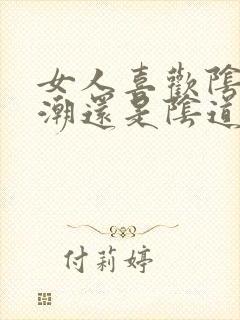 女人喜歡陰
潮還是陰道
付莉婷